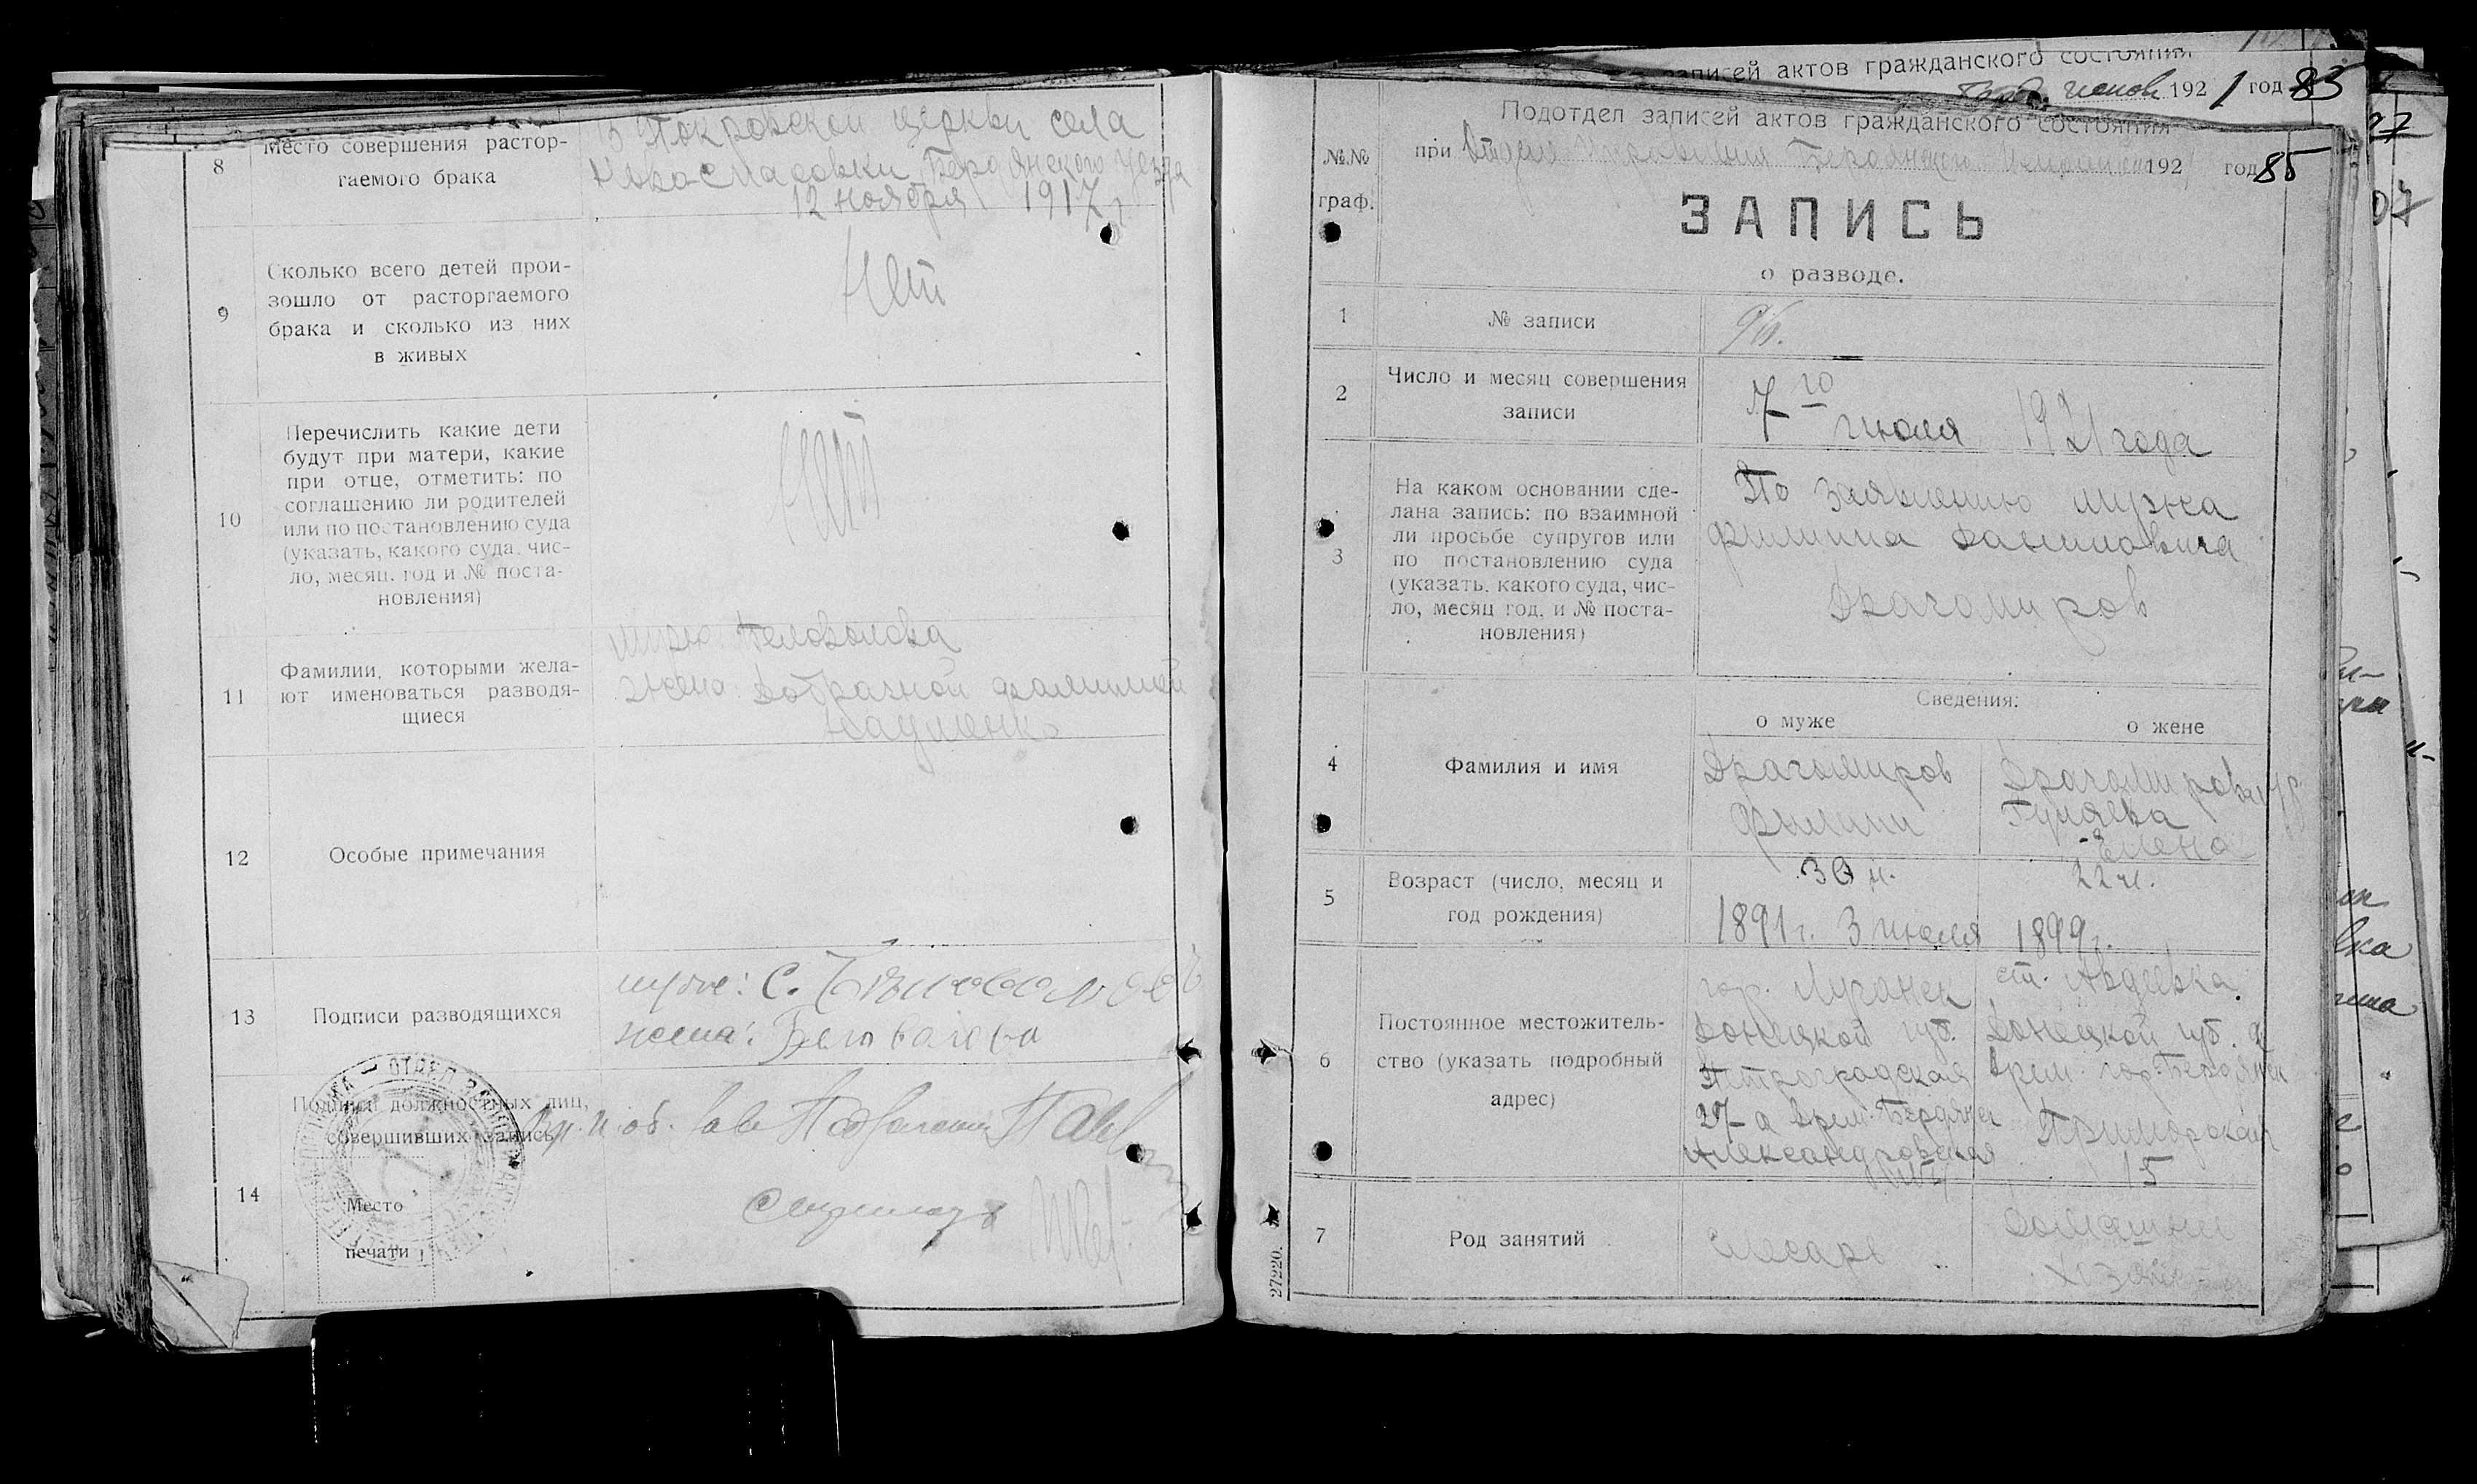 8
Место совершения растор-
гаемого брака
В Покровской церкви села
Новоспасовки Бердянского уезда
12 ноября 1917 г
9
Сколько всего детей прои-
зошло от расторгаемого
брака и сколько из них
в живых
Нет
10
Перечислить какие дети
будут при матери, какие
при отце, отметить: по
соглашению ли родителей
или по постановлению суда
(указать, какого суда, чис-
ло, месяц, год и № поста-
новления)
Нет
11
Фамилии, которыми жела-
ют именоваться разводя-
щиеся
муж. Беловолова
жена: добрачной фамилией
Науменко
12
Особые примечания
13
Подписи разводящихся
муж: С.
жена: Беловолова
14
Подписи должностных лиц,
совершивших запись
Место
печати
записей актов гражданского состояния
192 1 год 85
Подотдел записей актов гражданского состояния
при Отделе Управления Бердянского 192 год 85
№№
граф.
ЗАПИСЬ
о разводе.
1
№ записи
96.
2
Число и месяц совершения
записи
7го июля 1921 года
3
На каком основании сде-
лана запись: по взаимной
ли просьбе супругов или
по постановлению суда
(указать, какого суда, чис-
ло, месяц год, и № поста-
новления)
По заявлению мужа
Филиппа Даниловича
Драгомиров
Сведения:
о муже
о жене
4
Фамилия и имя
Драгомиров
Филипп
Драгомирова
Гуляева
Елена
5
Возраст (число, месяц и
год рождения)
30 л.
1891 г. 3 июля
22 л.
1899 г.
6
Постоянное местожитель-
ство (указать подробный
адрес)
гор. Луганск
Донецкой губ.
Петроградская
27 а врем. Бердянск
Александровская
ст. Авдеевка
Донецкой губ. а
врем. гор. Бердянск
Приморская
15
7
Род занятий
слесарь
домашнее
хозяйство
27220.